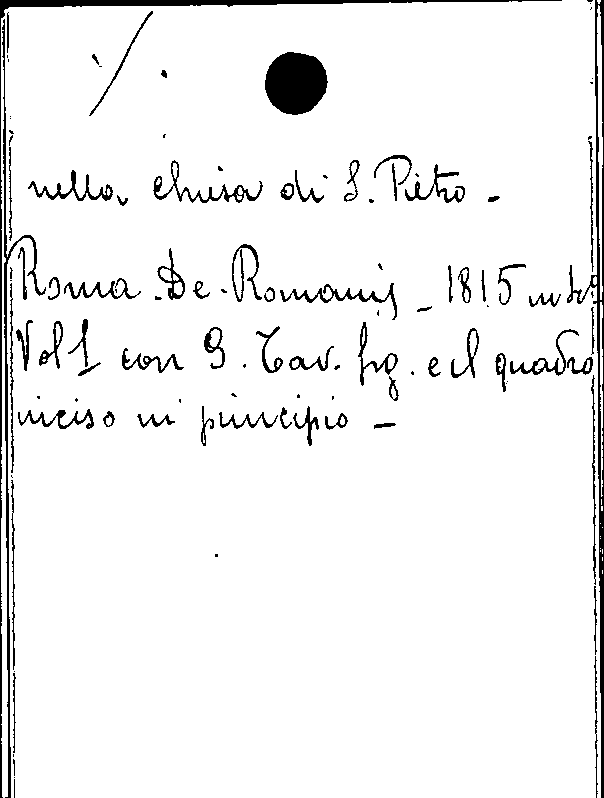 ./.
nella chiesa di S. Pietro -
Roma. De-Romanis - 1815 in
Vol 1 con 9. Tav. fig. e il quadro
inciso in principio -